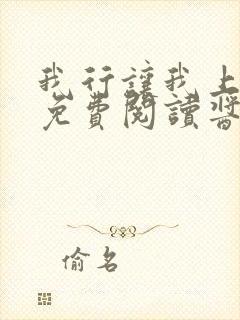 我行讓我上
免費閱讀醬
偷名